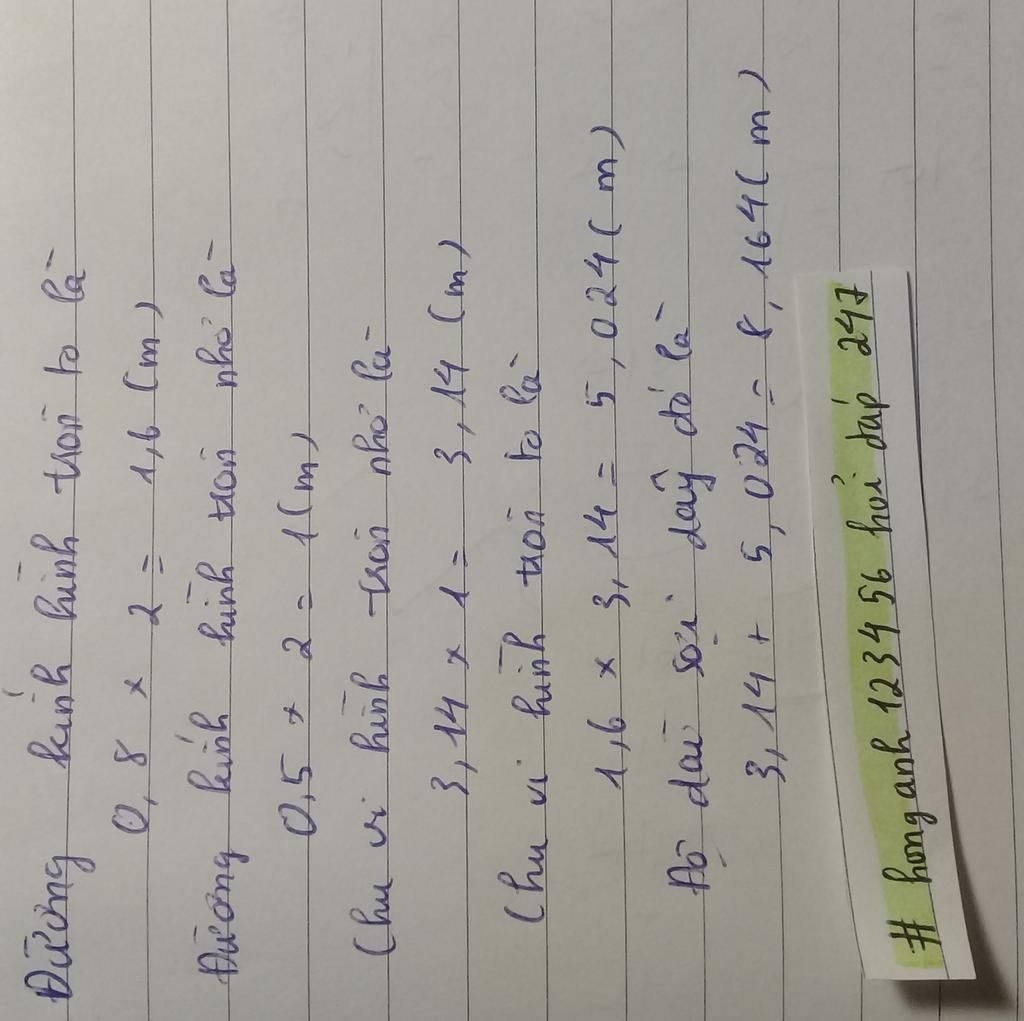 Đường kính hình tròn to là
0,8 x 2 = 1,6 (m)
Đường kính hình tròn nhỏ là
0,5 x 2 = 1 (m)
Chu vi hình tròn nhỏ là
3,14 x 1 = 3,14 (m)
Chu vi hình tròn to là
1,6 x 3,14 = 5,024 (m)
Độ dài sợi dây đó là
3,14 + 5,024 = 8,164 (m)
# honganh123456 hỏi đáp 247